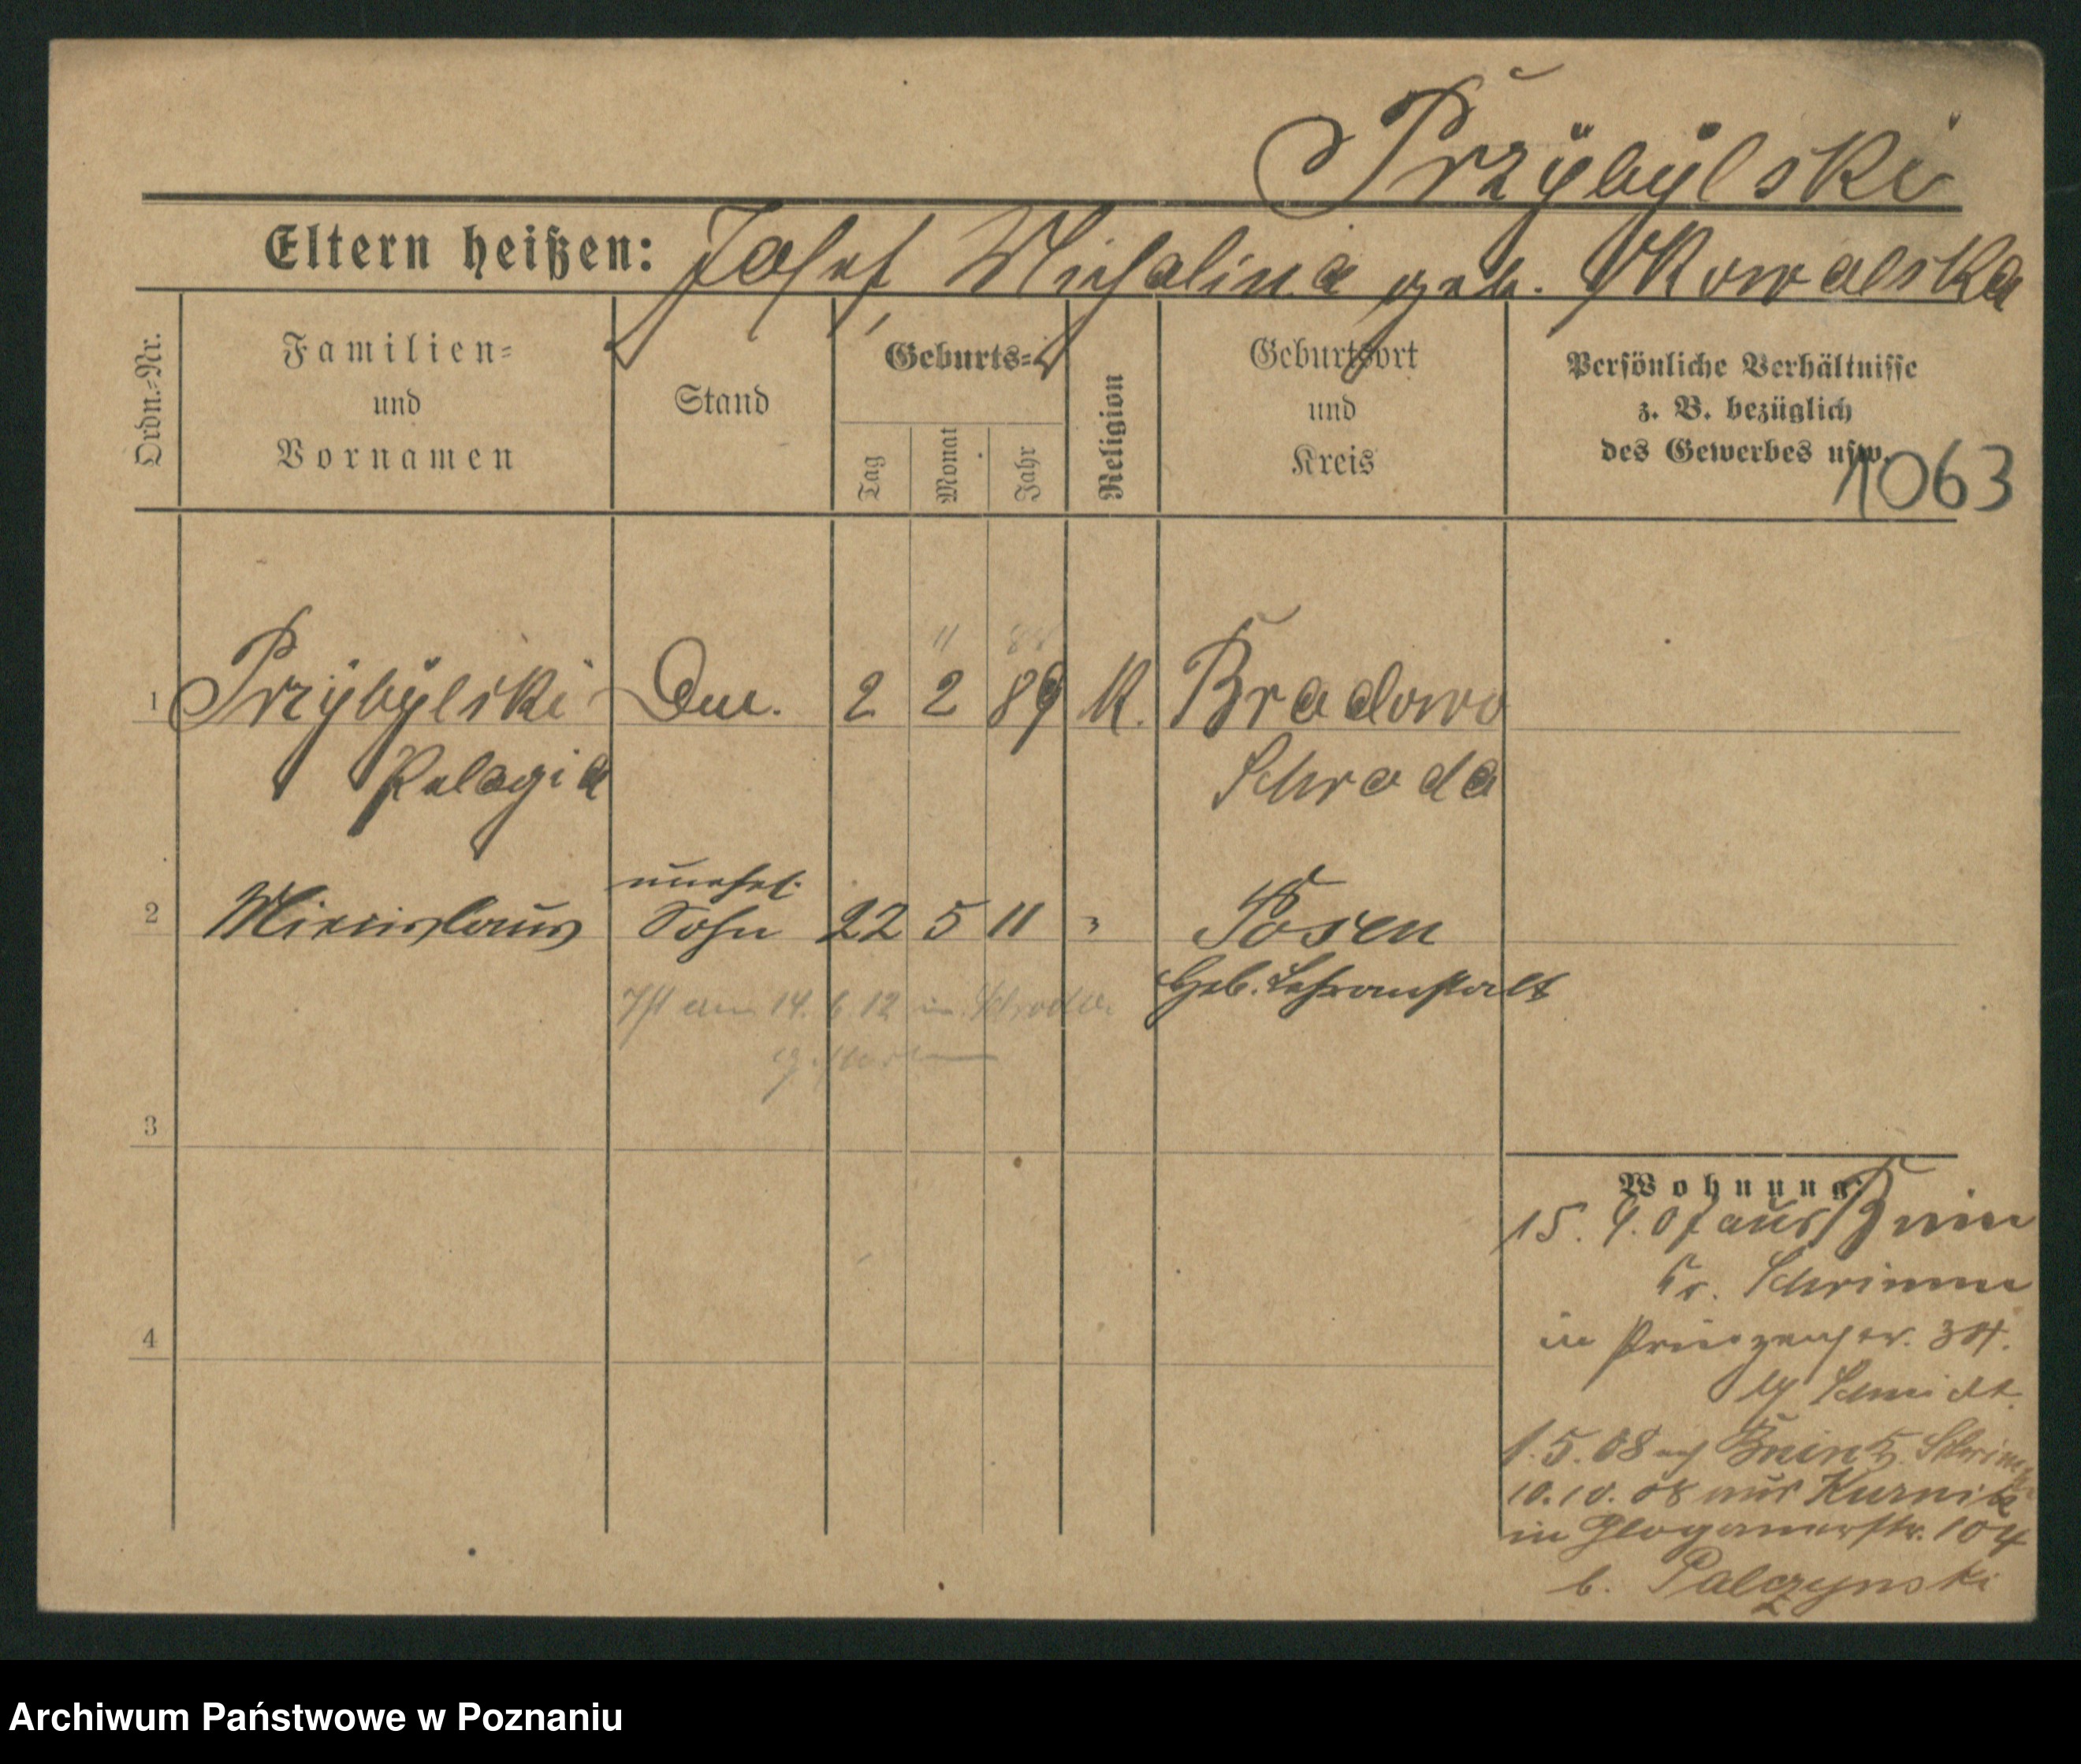 Przÿbÿlski
Eltern heißen: Josef, Michalina geb. Kowalska
Ordn.-Nr.
Familien-
und
Vornamen
Stand
Geburts-
Tag
Monat
Jahr
Religion
Geburtsort
und
Kreis
Persönliche Verhältnisse
z. B. bezüglich
des Gewerbes usw.
1063
11 88
1 Przÿbÿlski 2 2 89 K. Bradowo
Pelagia Schroda
unehel.
2 Miecislaus Sohn 22 5 11 " Posen
Geb. Lehranstalt
Ist am 14. 6 12 in Schroda
gestorben
3
4
Wohnung:
15. 9. 07 aus Bnin
Kr. Schrimm
in Prinzenstr.
Schmidt.
1. 5. 08 Bnin K. Schrimm
10. 10. 08 aus Kurnik
in Glogauerstr. 104
b. Palczynski
Archiwum Państwowe w Poznaniu